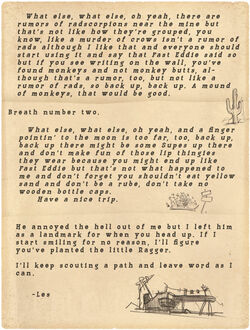 What else, what else, oh yeah, there are
rumors of radscorpions near the mine but
that's not like how they're grouped, you
know, like a murder of crows isn't a rumor of
rads although I like that and everyone should
start using it and say that Fast Eddie said so
but if you see writing on the wall, you've
found monkeys and not monkey butts, al-
though that's a rumor, too, but not like a
rumor of rads, so back up, back up. A mound
of monkeys, that would be good.
Breath number two.
What else, what else, oh yeah, and a finger
pointin' to the moon is too far, too, back up,
back up there might be some Supes up there
and don't make fun of those lip thingies
they wear because you might end up like
Fast Eddie but that's not what happened to
me and don't forget you shouldn't eat yellow
sand and don't be a rube, don't take no
wooden bottle caps.
Have a nice trip.
He annoyed the hell out of me but I left him
as a landmark for when you head up. If I
start smiling for no reason, I'll figure
you've planted the little Ragger.
I'll keep scouting a path and leave word as I
can.
-Les